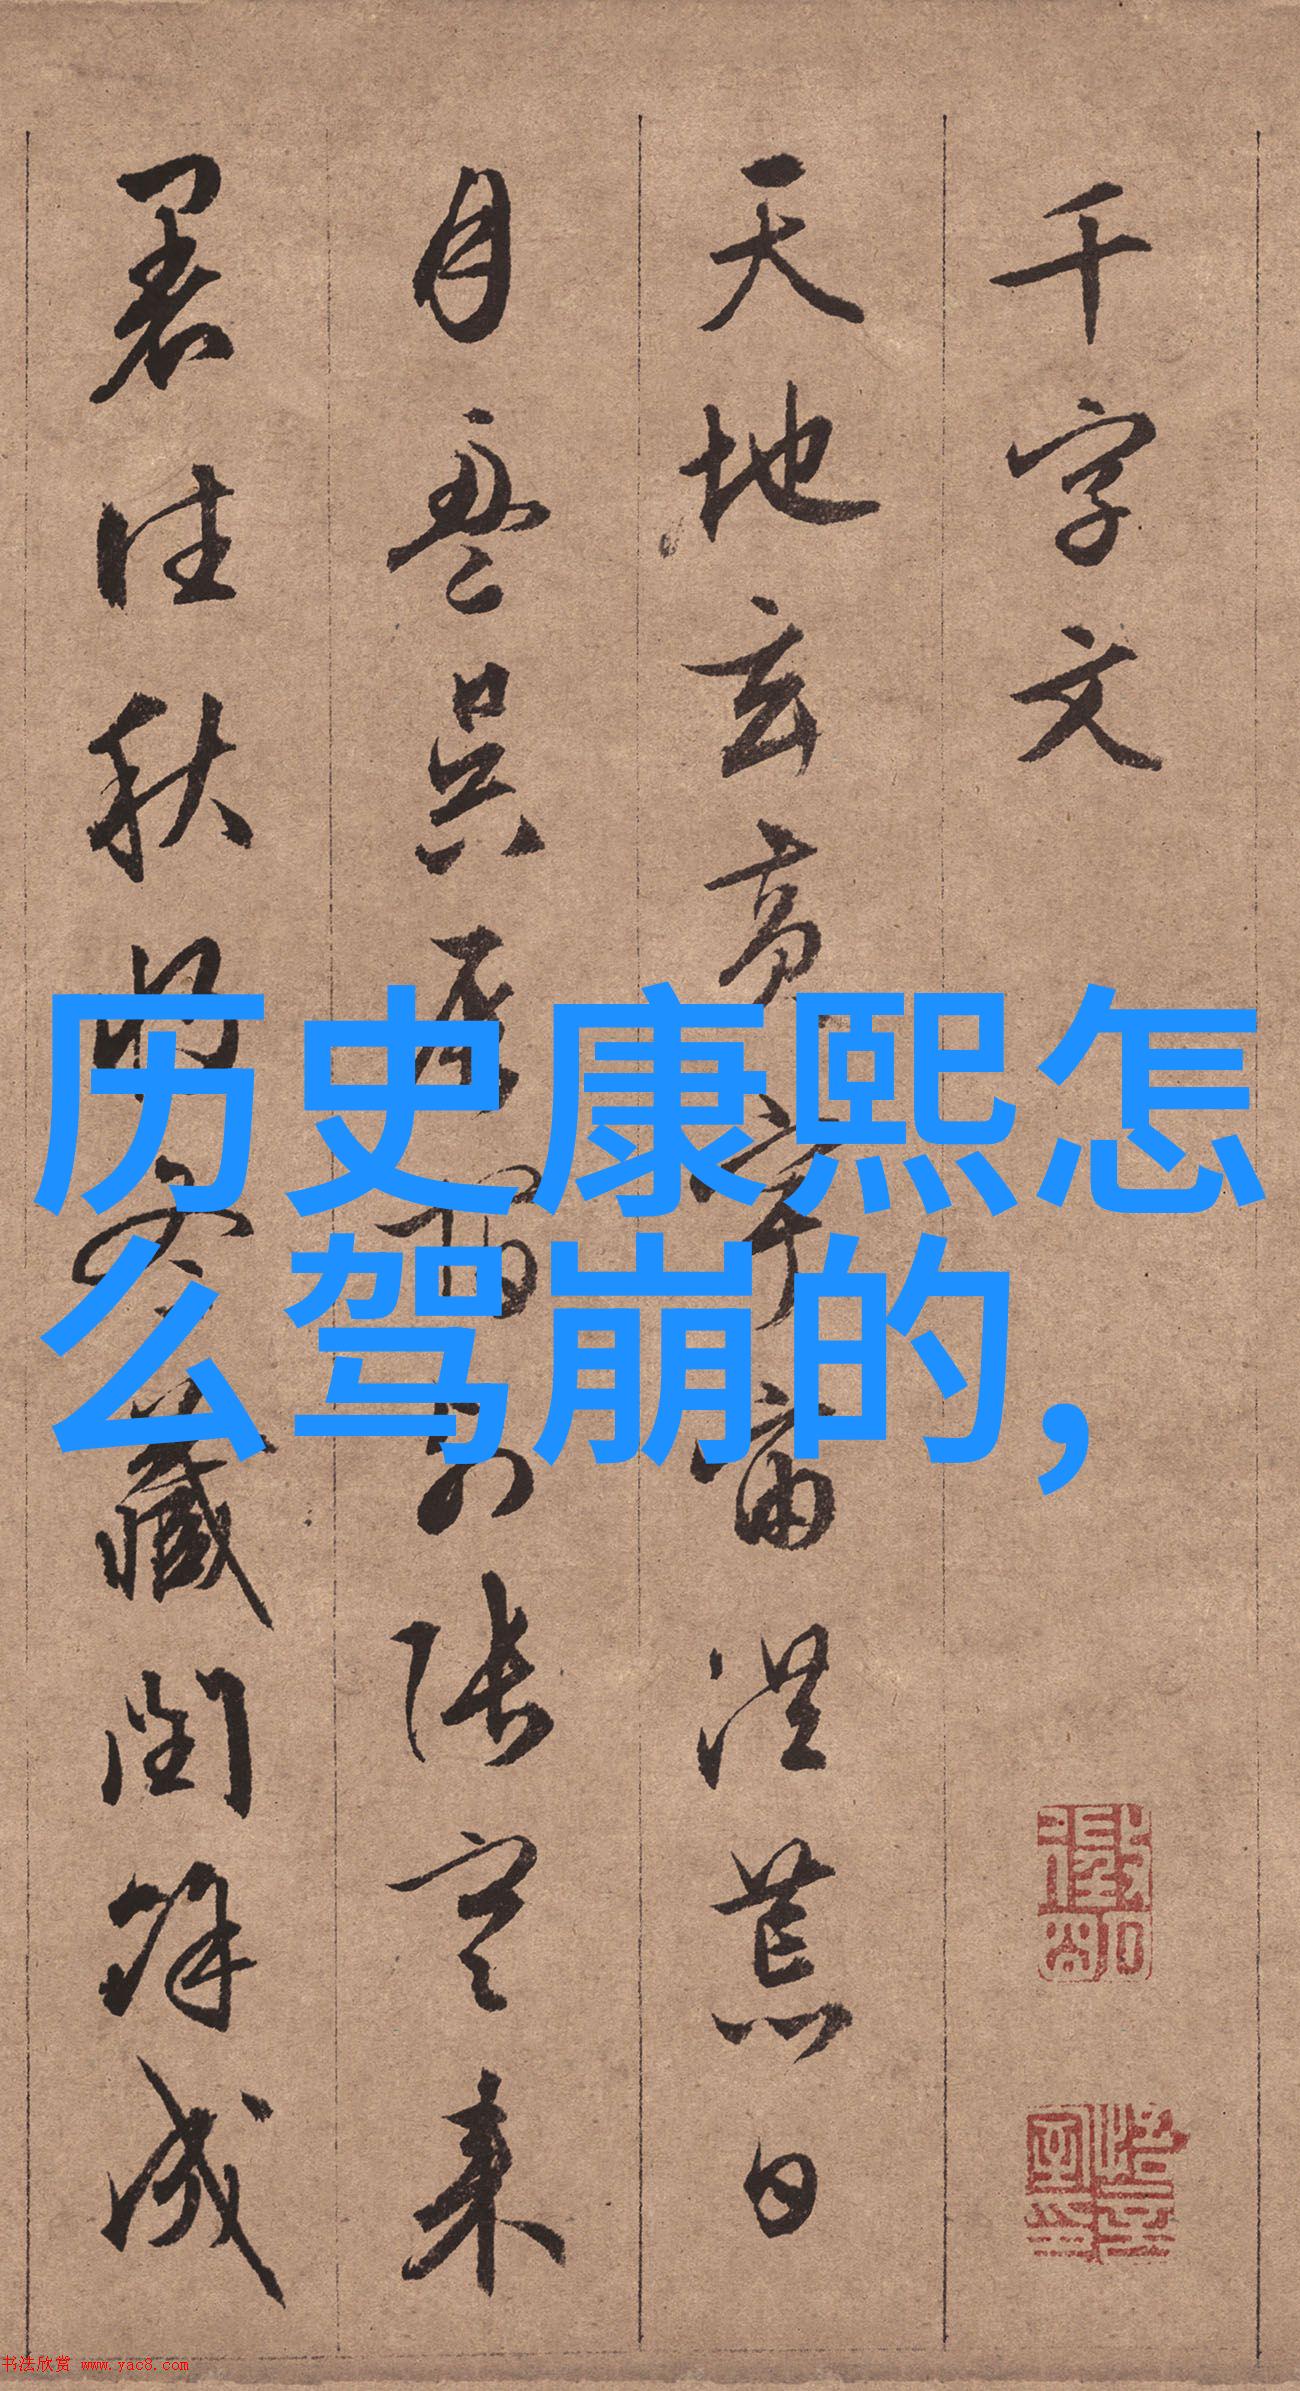 千字文
天地玄黄宇宙洪荒日
月盈昃辰宿列张寒来
暑往秋收冬藏闰余成
历史康熙怎
么驾崩的,
书法欣赏 www.yac8.com